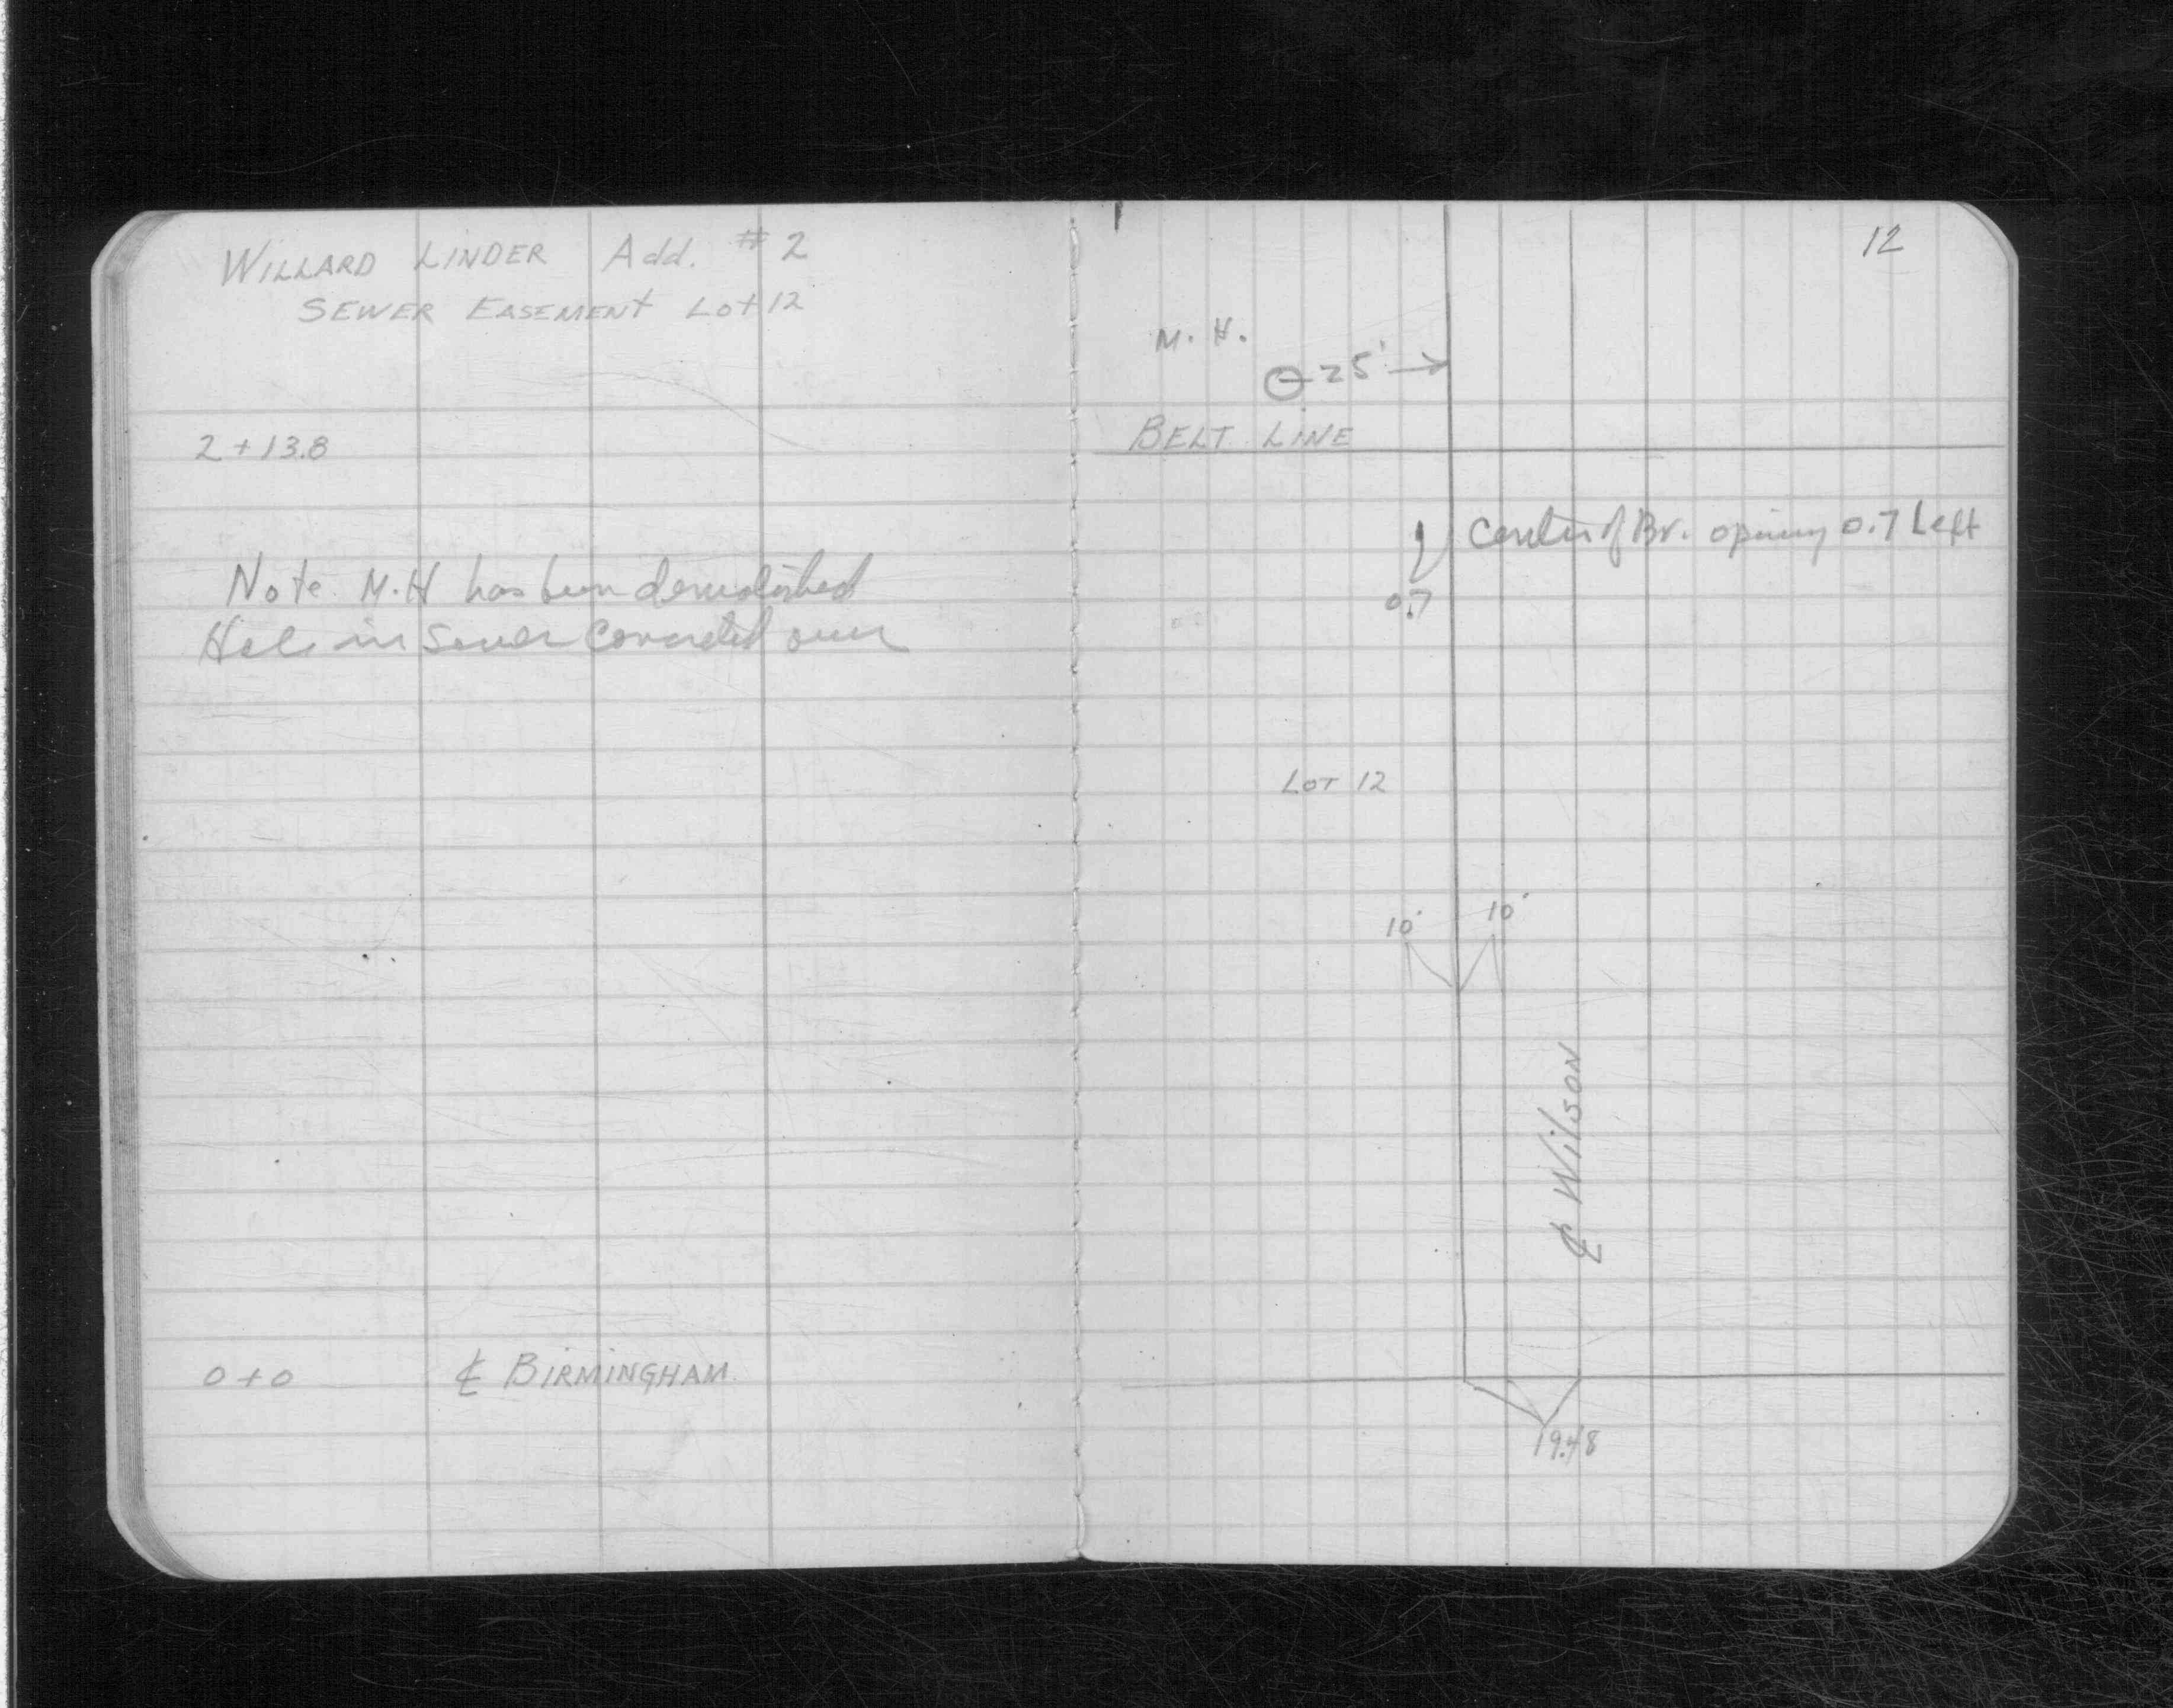 WILLARD LINDER Add. #2
SEWER EASEMENT LOT 12
2+13.8
Note M.H has been demolished
Hole in Sewer Concreted over
0+0 ℄ BIRMINGHAM
12
M. H.
25' →
BELT LINE
Center of Br. opening 0.7 Left
0.7
LOT 12
10' 10'
℄ Wilson
19.48